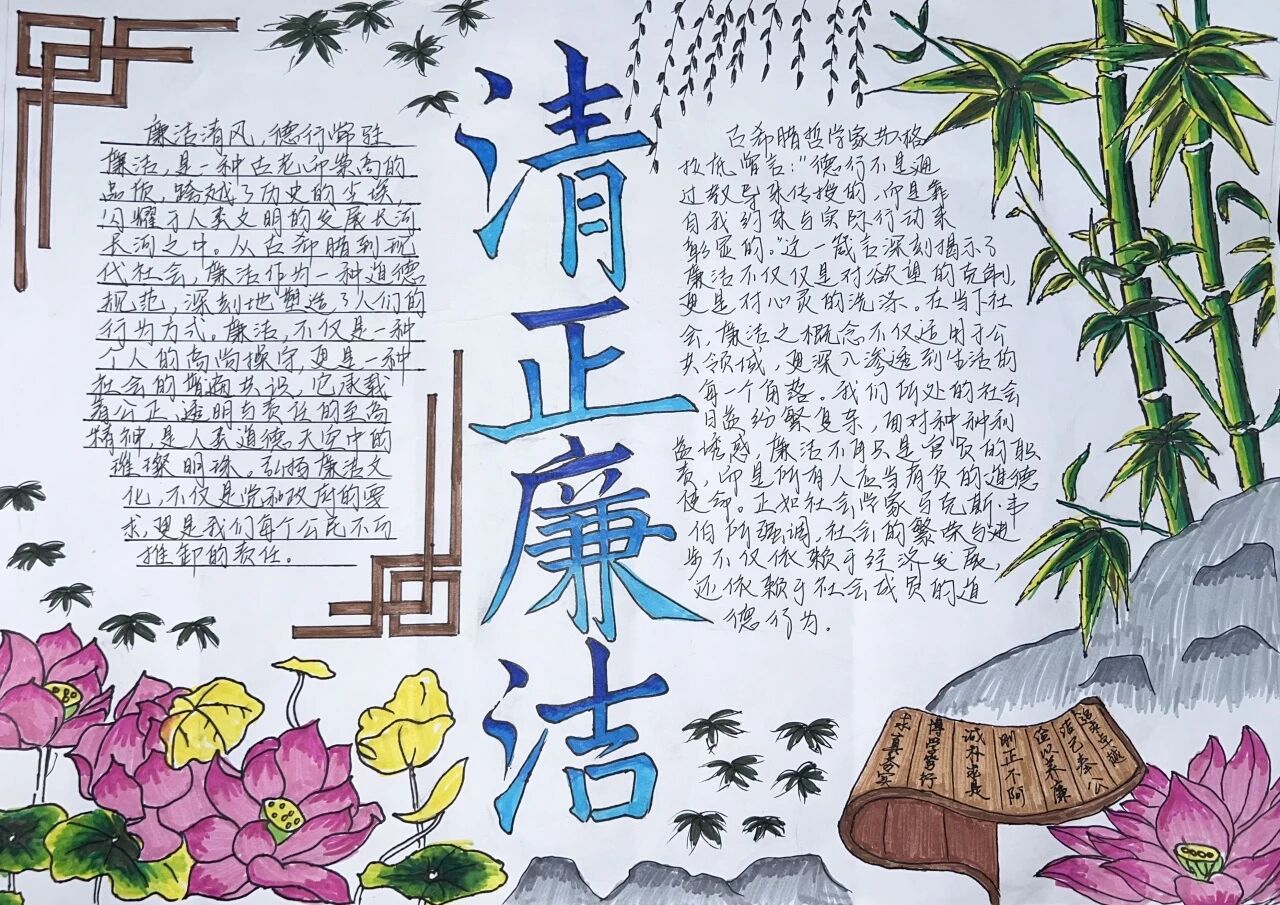 清正廉洁
廉洁清风，德行常驻
廉洁，是一种古老而崇高的
品质，跨越了历史的尘埃，
闪耀于人类文明的发展长河
长河之中。从古希腊到现
代社会，廉洁作为一种道德
规范，深刻地塑造了人们的
行为方式。廉洁，不仅是一种
个人的高尚操守，更是一种
社会的普遍共识，它承载
着公正、透明与责任的至高
精神，是人类道德天空中的
璀璨明珠。弘扬廉洁文
化，不仅是党和政府的要
求，更是我们每个公民不可
推卸的责任。
古希腊哲学家苏格
拉底曾言：“德行不是通
过教导来传授的，而是靠
自我约束与实际行动来
彰显的。”这一箴言深刻揭示了
廉洁不仅仅是对欲望的克制，
更是对心灵的洗涤。在当下社
会，廉洁之概念不仅适用于公
共领域，更深入渗透到生活的
每一个角落。我们所处的社会
日益纷繁复杂，面对种种利
益诱惑，廉洁不再只是官员的职
责，而是所有人应当肩负的道德
使命。正如社会学家马克斯·韦
伯所强调，社会的繁荣与进
步不仅依赖于经济发展，
还依赖于社会成员的道
德行为。
求真务实
博学笃行
诚朴求是
刚正不阿
信以养廉
洁己奉公
追求卓越